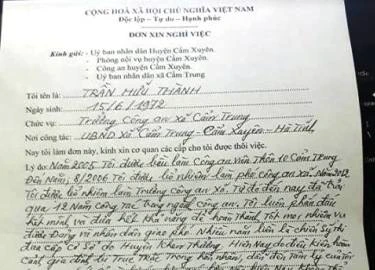 CỘNG HOÀ XÃ HỘI CHỦ NGHĨA VIỆT NAM
Độc lập – Tự do – Hạnh phúc
ĐƠN XIN NGHỈ VIỆC
Kính gửi: - Uỷ ban nhân dân Huyện Cẩm Xuyên.
- Phòng nội vụ huyện Cẩm Xuyên.
- Công an huyện Cẩm Xuyên.
- Uỷ ban nhân dân xã Cẩm Trung
Tôi tên là: TRẦN HỮU THÀNH
Ngày sinh: 15/6/1972
Chức vụ: Trưởng Công an xã Cẩm Trung
Nơi công tác: UBND xã Cẩm Trung - Cẩm Xuyên - Hà Tĩnh
Nay tôi làm đơn này, kính xin cơ quan các cấp cho tôi được thôi việc.
Lý do: Năm 2005 Tôi được bầu làm công an viên Thôn 10 Cẩm Trung
Đến Năm, 8/2006 Tôi được bổ nhiệm làm phó công an xã. Năm 2012
Tôi được bổ nhiệm làm Trưởng công an xã. Từ đó đến nay đã trải
qua 12 Năm công tác trong ngành công an. Tôi luôn phấn đấu
hết mình và đem hết khả năng để hoàn thành tốt mọi nhiệm vụ
được Đảng và nhân dân giao phó. Nhiều năm liền là chiến sỹ thi
đua cấp cơ sở do Huyện khen Thưởng. Hiện Nay do điều kiện hoàn
cảnh gia đình bị trục trặc trong hôn nhân, dẫn đến tâm lý của tôi